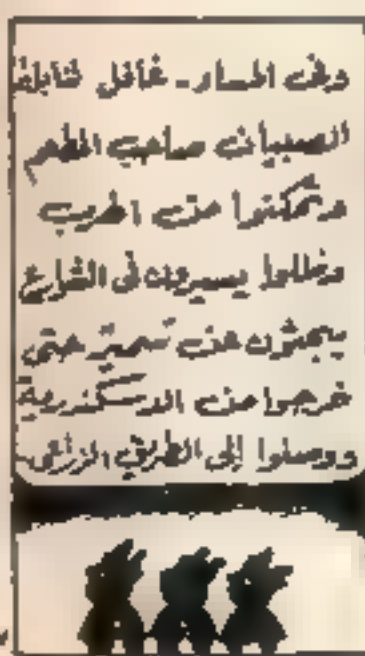 وفى المساء - غافل
الصبيان صاحب المطعم
وتمكنوا من الهرب
وظلوا يسيرون فى الشوارع
يبحثون عن سمير حتى
خرجوا من الاسكندرية
ووصلوا إلى الطريق الزراعى